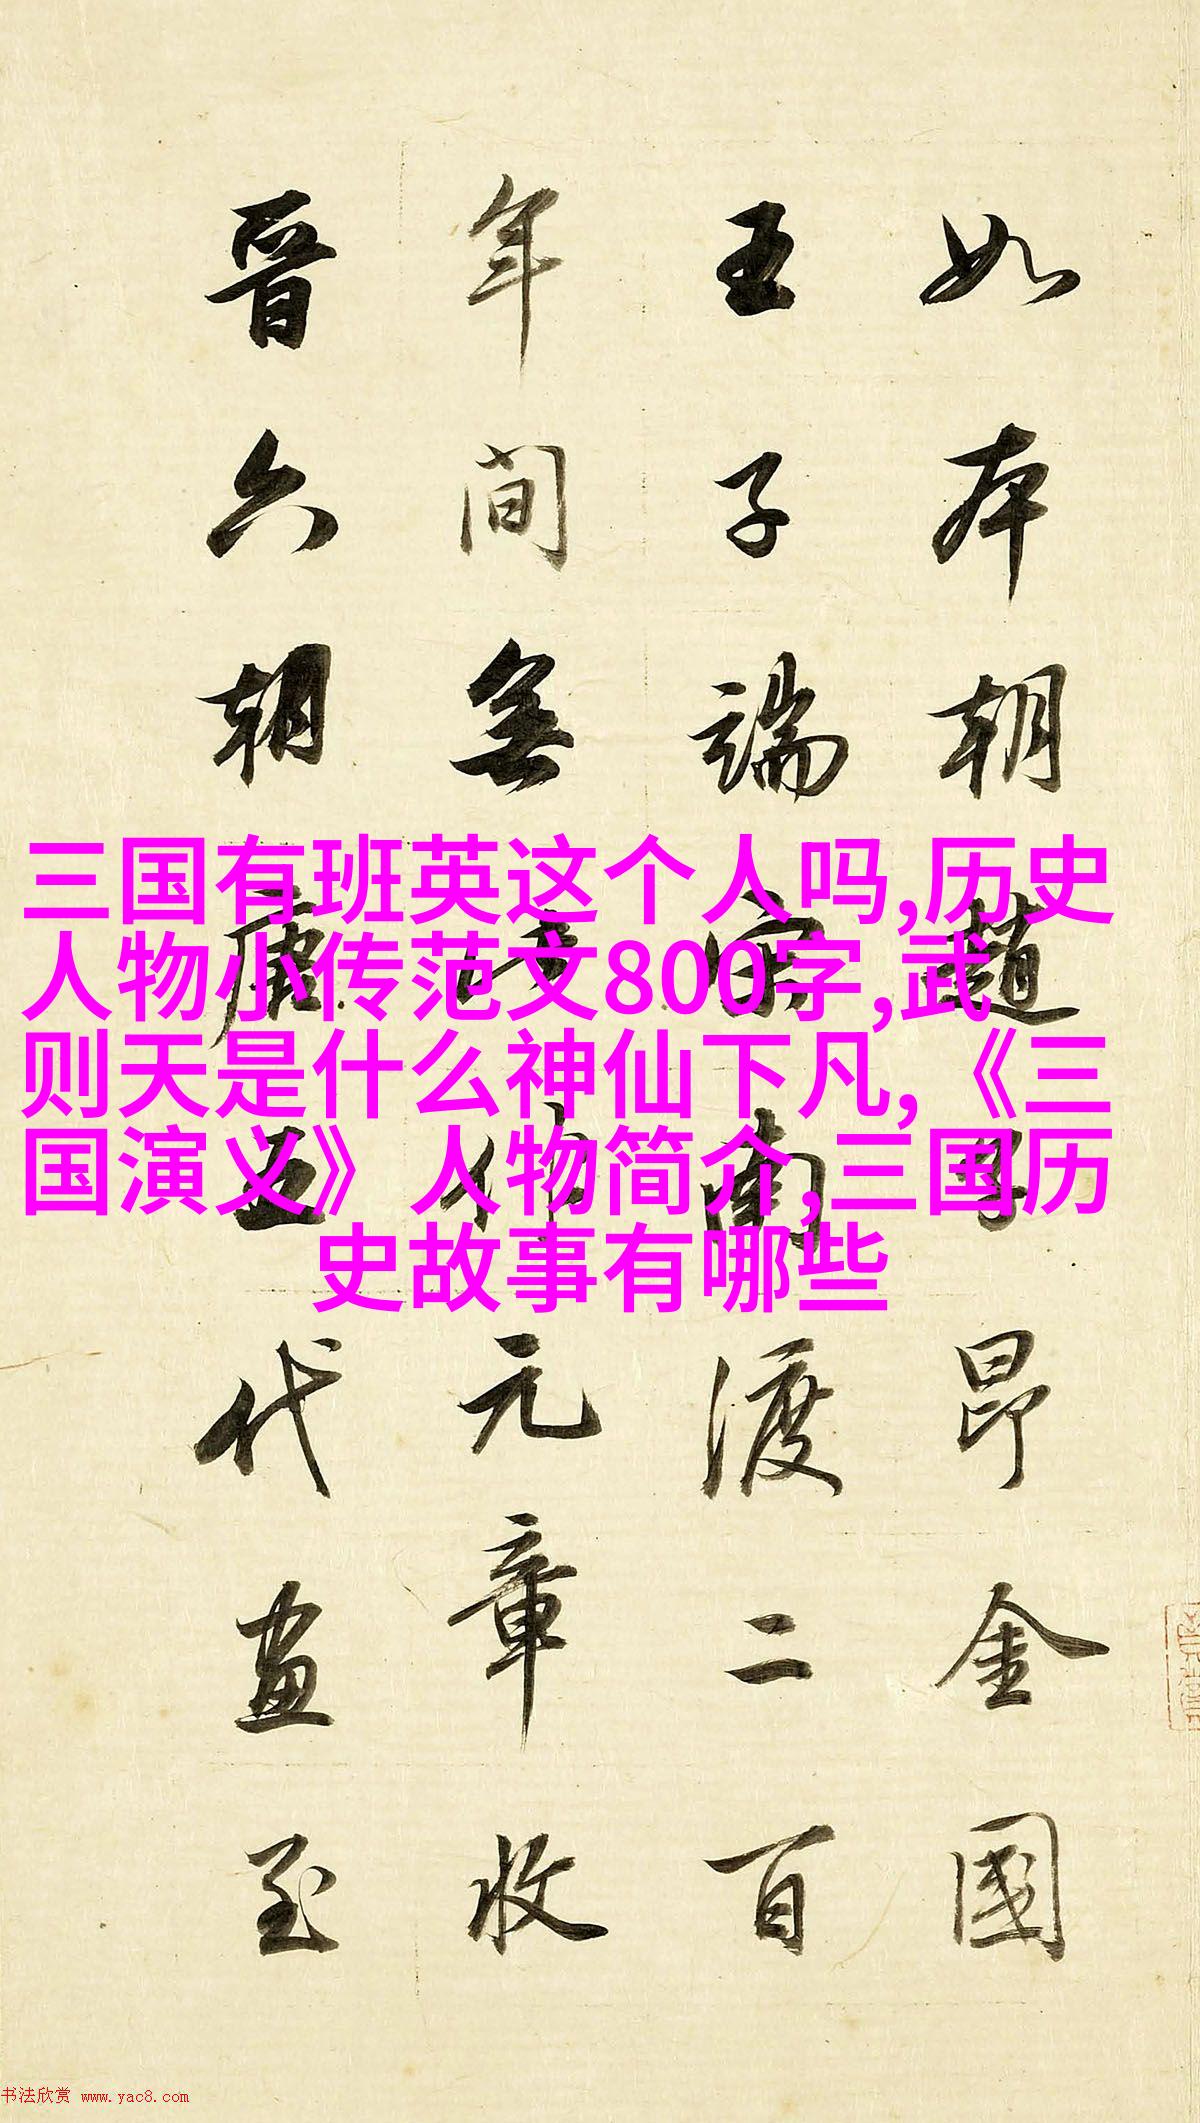 三国有班英这个人吗,历史
人物小传范文800字,武
则天是什么神仙下凡,《三
国演义》人物简介,三国历
史故事有哪些
如本朝趙子昂金國
王子端宋南渡二百
年間無此作元章收
晉六朝唐五代畫至
书法欣赏 www.yac8.com